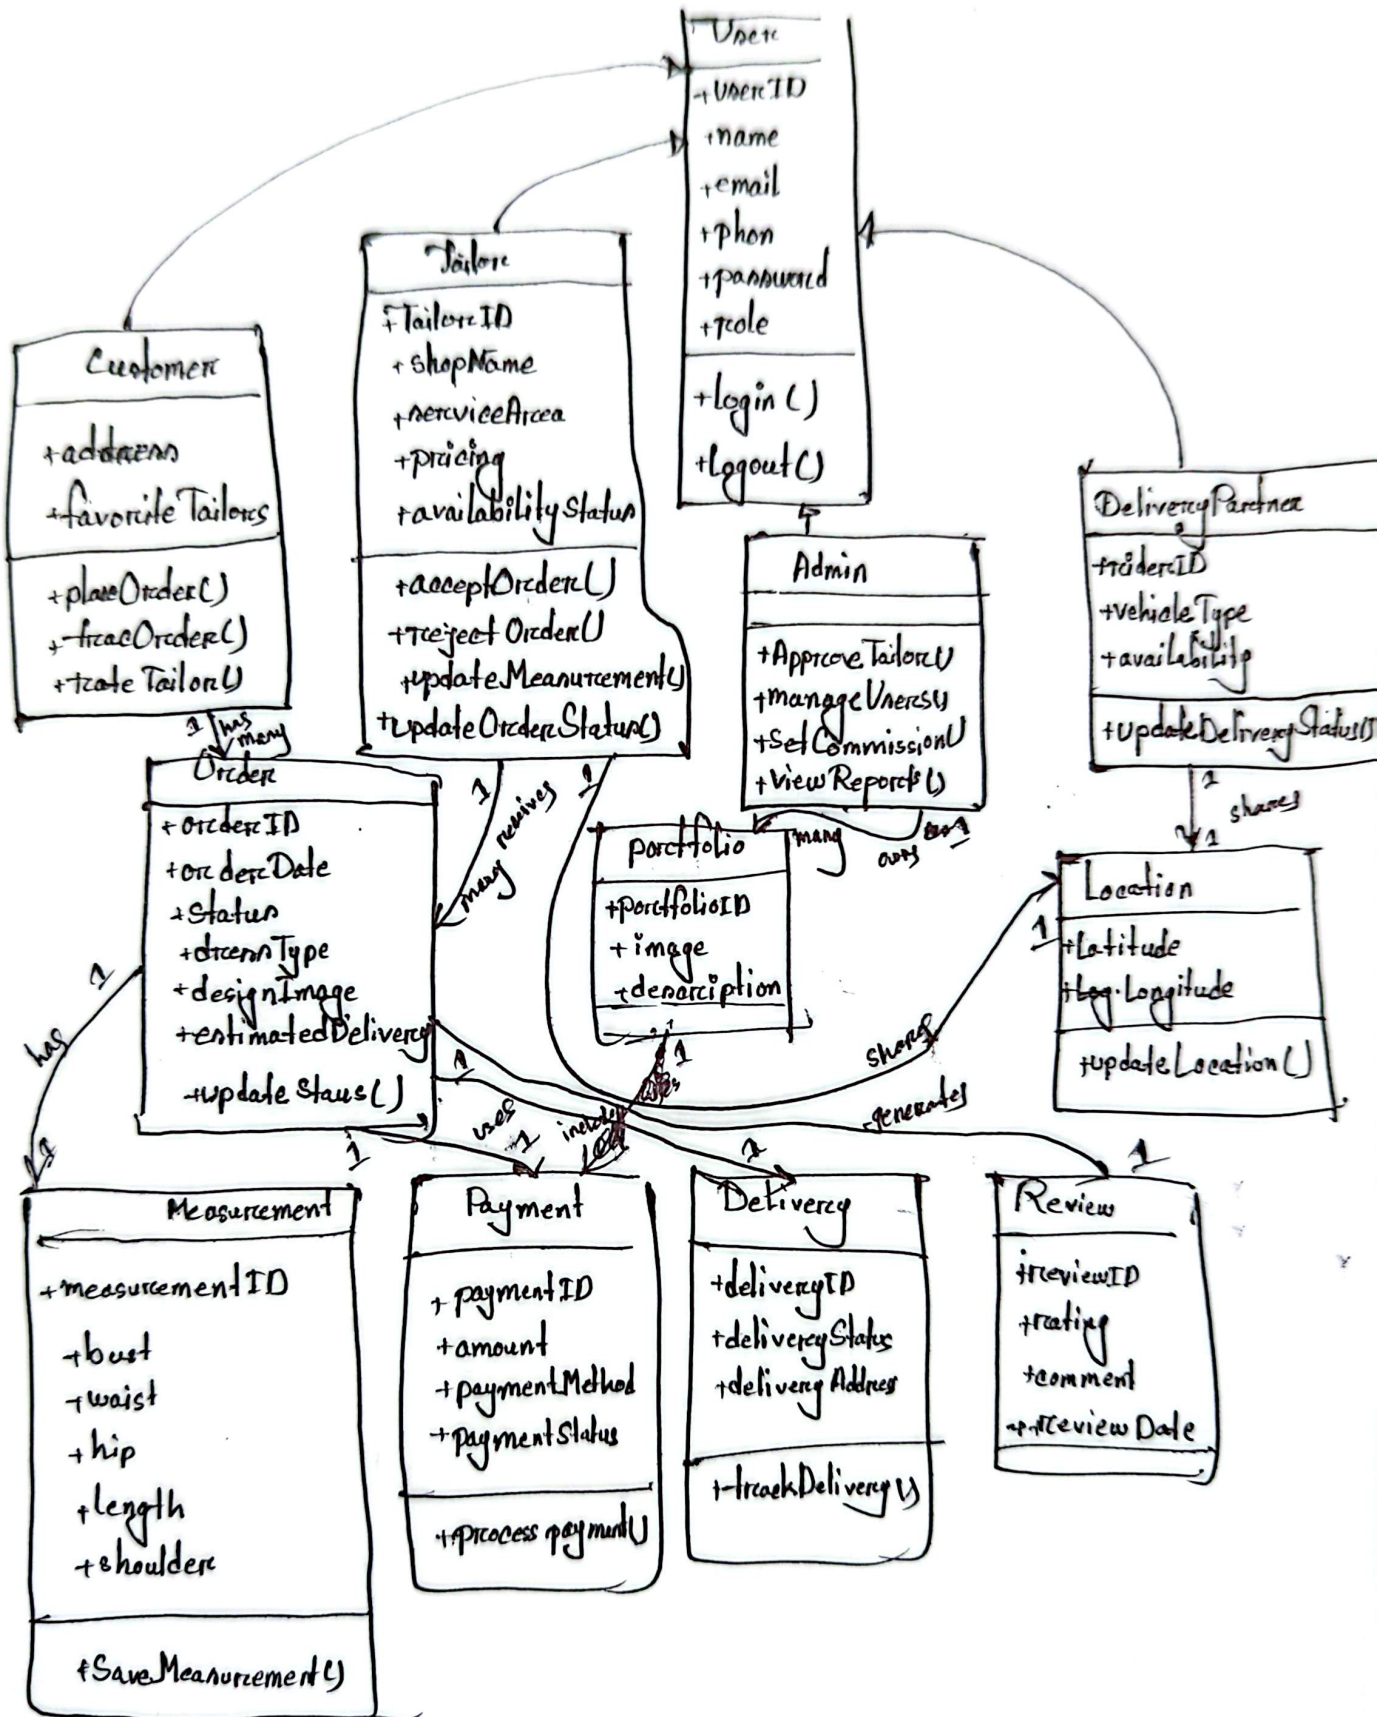 User
+userID
+name
+email
+phon
+password
+role
+login()
+Logout()
Tailor
+TailorID
+shopName
+serviceArea
+pricing
+availabilityStatus
+acceptOrder()
+reject Order()
+updateMeasurement()
+updateOrderStatus()
Customer
+address
+favorite Tailors
+placeOrder()
+tracOrder()
+rateTailor()
1 has
many
Admin
+ApproveTailor()
+manageUsers()
+SetCommission()
+ViewReports()
DeliveryPartner
+riderID
+vehicleType
+availability
+updateDeliveryStatus()
1
shares
1
Order
+orderID
+orderDate
+Status
+dressType
+designImage
+estimatedDelivery
+update Staus()
1
receives
many
1
portfolio
+portfolioID
+image
+desorciption
many
owns
1
Location
+Latitude
+Log.Longitude
+updateLocation()
shares
1
1
has
1
1
uses
1
1
includes
1
1
generates
1
Measurement
+measurementID
+bust
+waist
+hip
+length
+shoulder
+SaveMeasurement()
Payment
+paymentID
+amount
+paymentMethod
+paymentStatus
+process payment()
Delivery
+deliveryID
+deliveryStatus
+delivery Address
+trackDelivery()
Review
+reviewID
+rating
+comment
+reviewDate